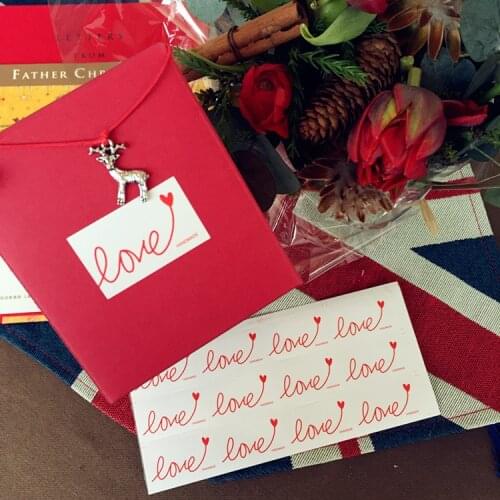 LETTERS
FROM
FATHER CHR
love
HANDMADE
love love love love
love love love love
love love love love